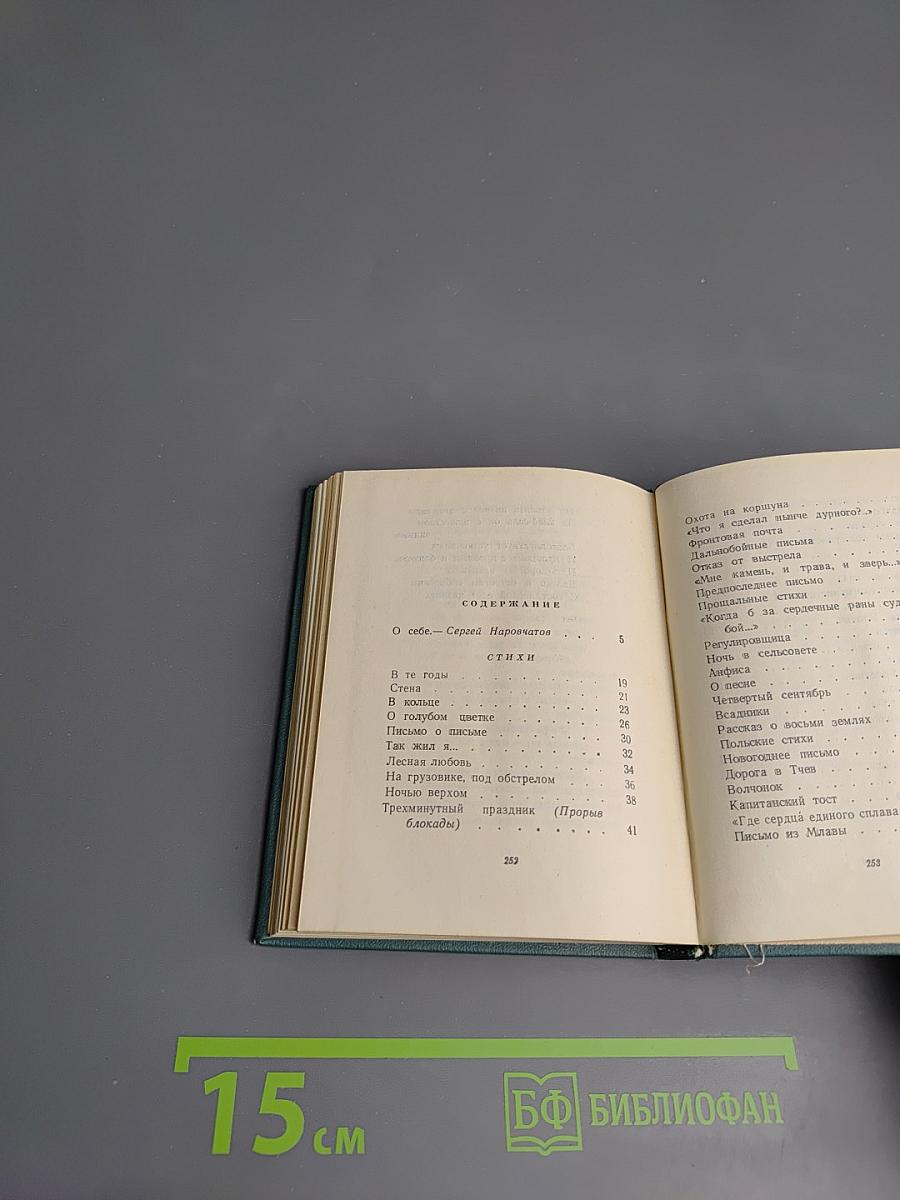 СОДЕРЖАНИЕ
О себе.— Сергей Наровчатов . . . 5
СТИХИ
В те годы . . . . . . . . . 19
Стена . . . . . . . . . . 21
В кольце . . . . . . . . . 23
О голубом цветке . . . . . . 26
Письмо о письме . . . . . . 30
Так жил я... . . . . . . . . 32
Лесная любовь . . . . . . . 34
На грузовике, под обстрелом . . . 36
Ночью верхом . . . . . . . 38
Трехминутный праздник (Прорыв
блокады) . . . . . . . . 41
252
Охота на коршуна . . . .
«Что я сделал нынче дурного?..»
Фронтовая почта . . . .
Дальнобойные письма . . .
Отказ от выстрела . . . .
«Мне камень, и трава, и зверь...»
Предпоследнее письмо . . .
Прощальные стихи . . . .
«Когда б за сердечные раны суд
бой...» . . . . . .
Регулировщица . . . . .
Ночь в сельсовете . . . .
Анфиса . . . . . . .
О песне . . . . . . .
Четвертый сентябрь . . . .
Всадники . . . . . . .
Рассказ о восьми землях . .
Польские стихи . . . . .
Новогоднее письмо . . . .
Дорога в Тчев . . . . .
Волчонок . . . . . . .
Капитанский тост . . . .
«Где сердца единого сплава
Письмо из Млавы . . . .
253
15 см
БФ БИБЛИОФАН